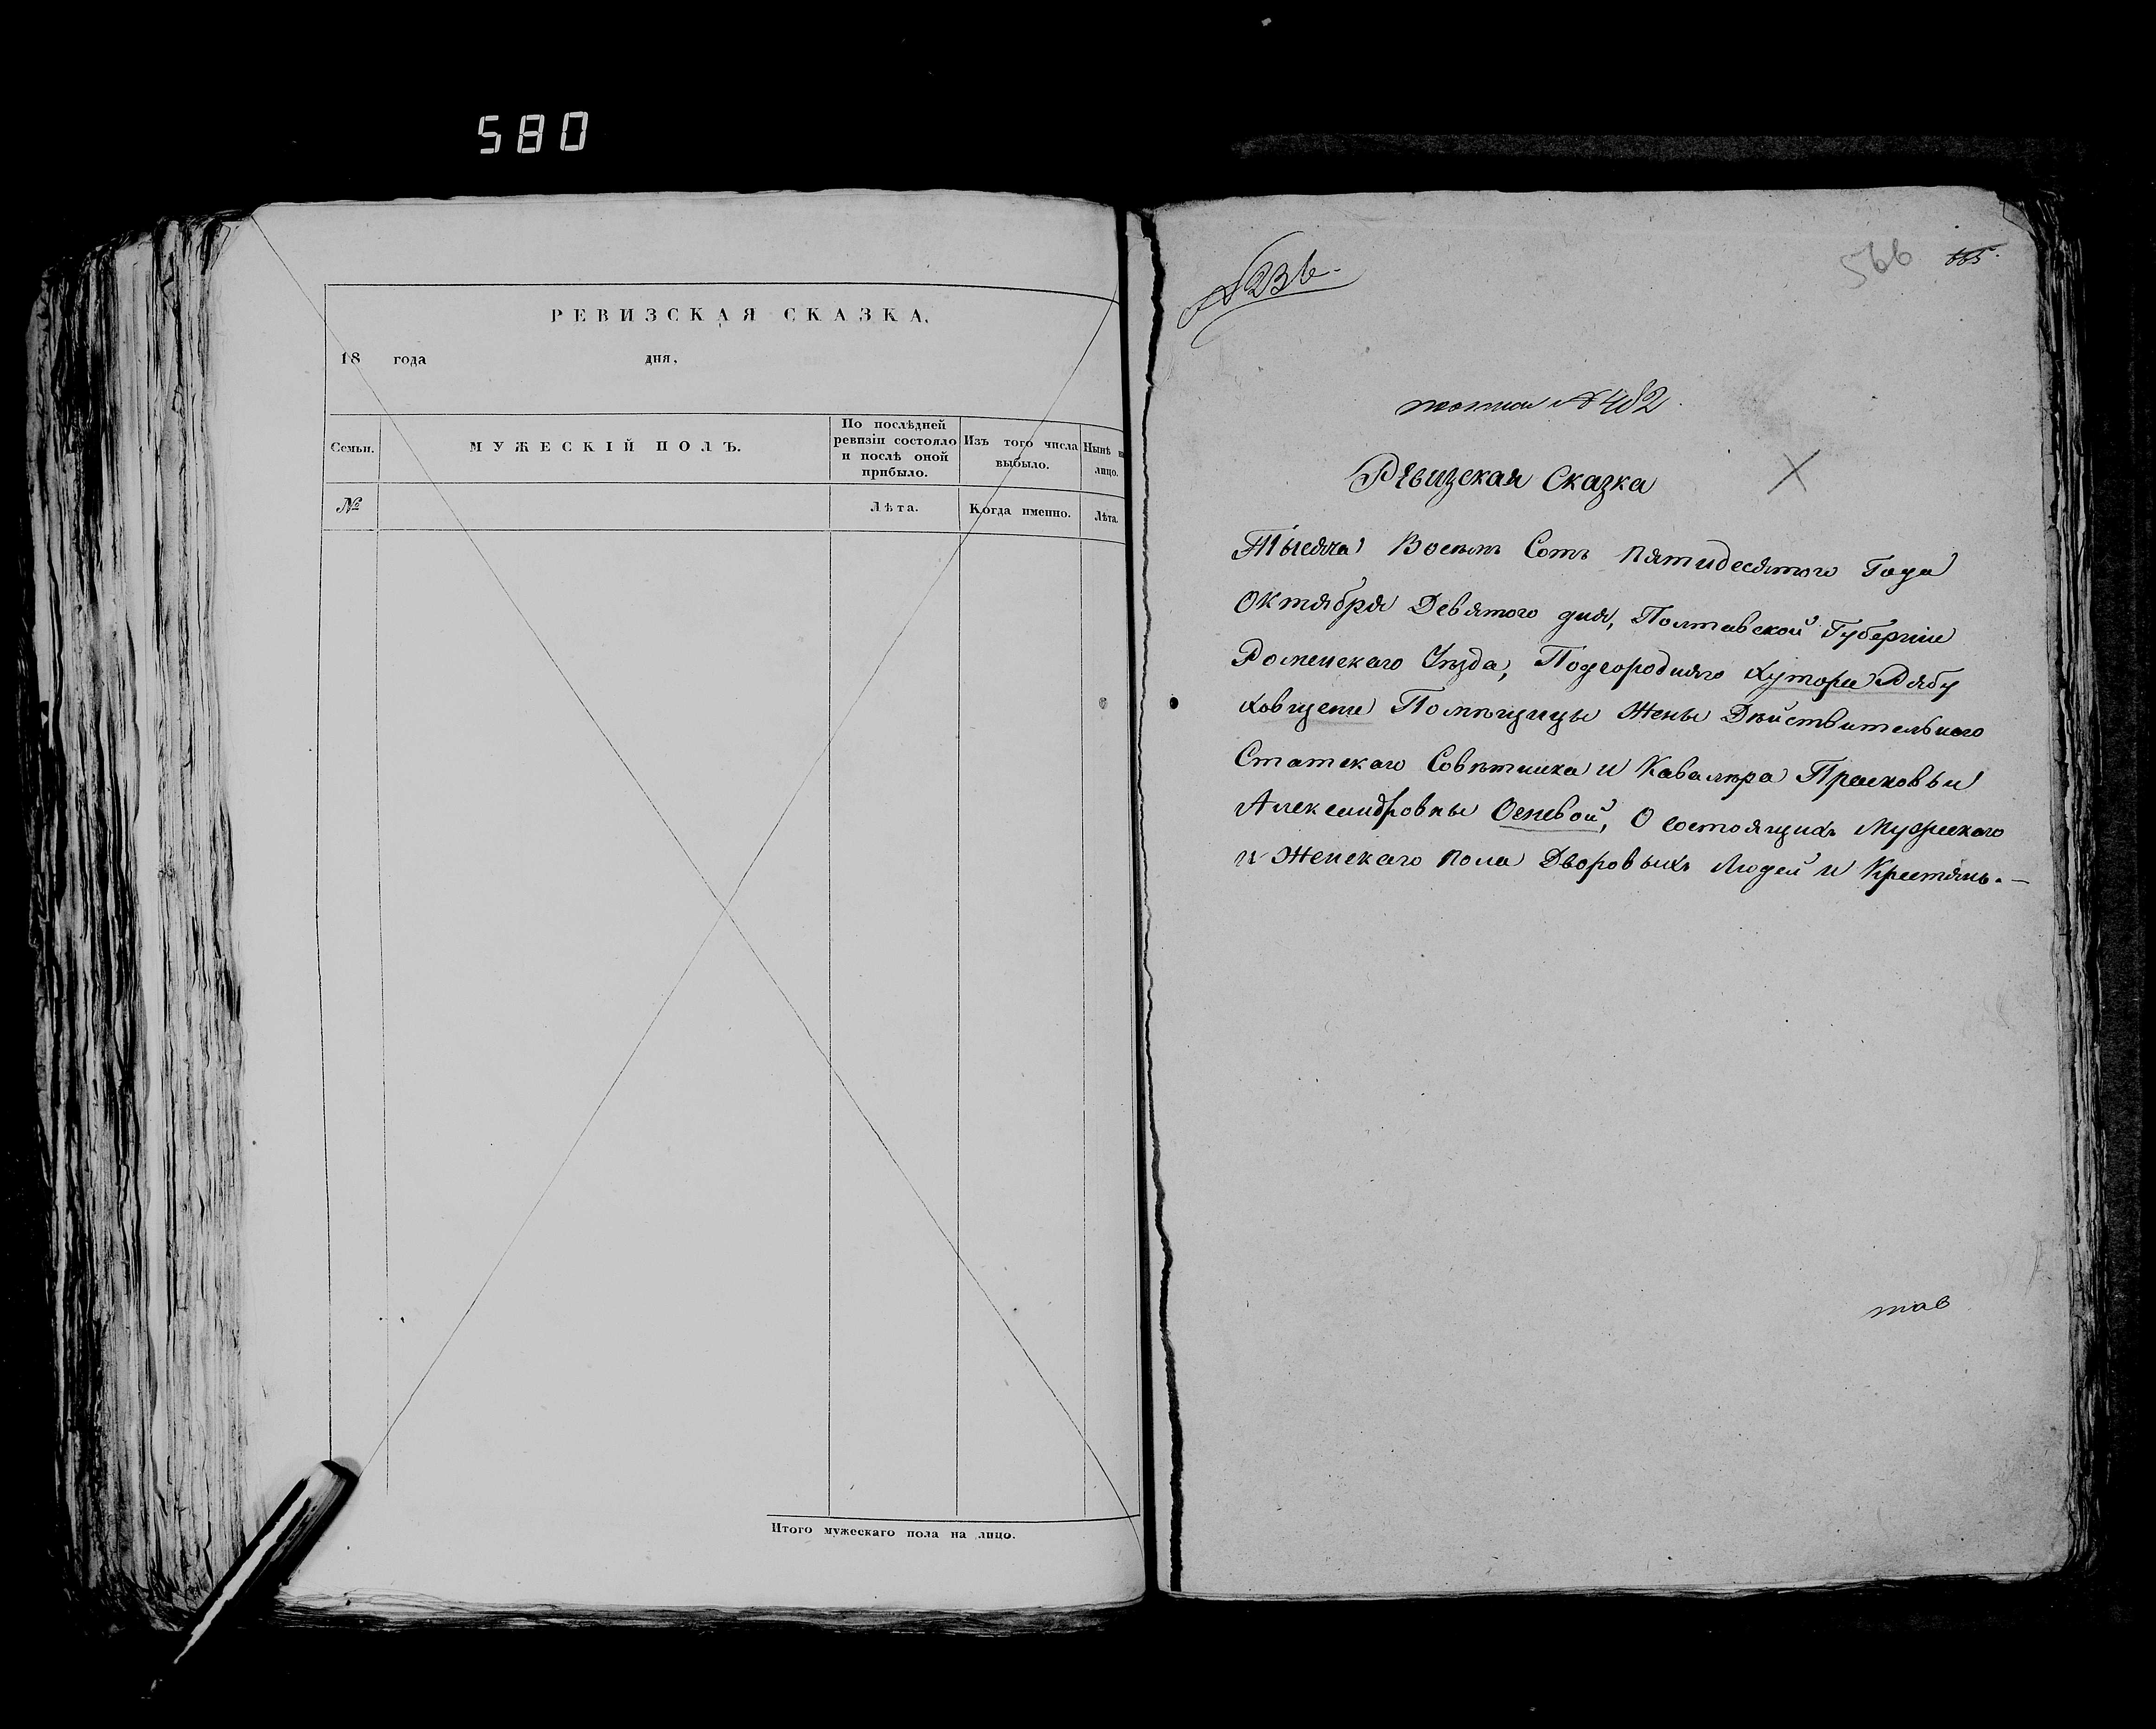 580
РЕВИЗСКАЯ СКАЗКА.
18 года дня.
Семьи.
МУЖЕСКІЙ ПОЛЪ.
По послѣдней
ревизіи состояло
и послѣ оной
прибыло.
Изъ того числа
выбыло.
Нынѣ
лицо.
№
Лѣта.
Когда именно.
Лѣта.
Итого мужескаго пола на лицо.
566
№ 482
Ревизская Сказка
Тысяча Восемь Сотъ Пятидесятого Года
Октября Девятого дня, Полтавской Губерніи
Роменскаго Уѣзда, Подгородняго хутора Рябу
ховщени Помѣщицы Жены Дѣйствительного
Статскаго Совѣтника и Кавалѣра Прасковьи
Александровны Осневой, О состоящихъ Мужескаго
и Женскаго пола Дворовыхъ Людей и Крестянъ. —